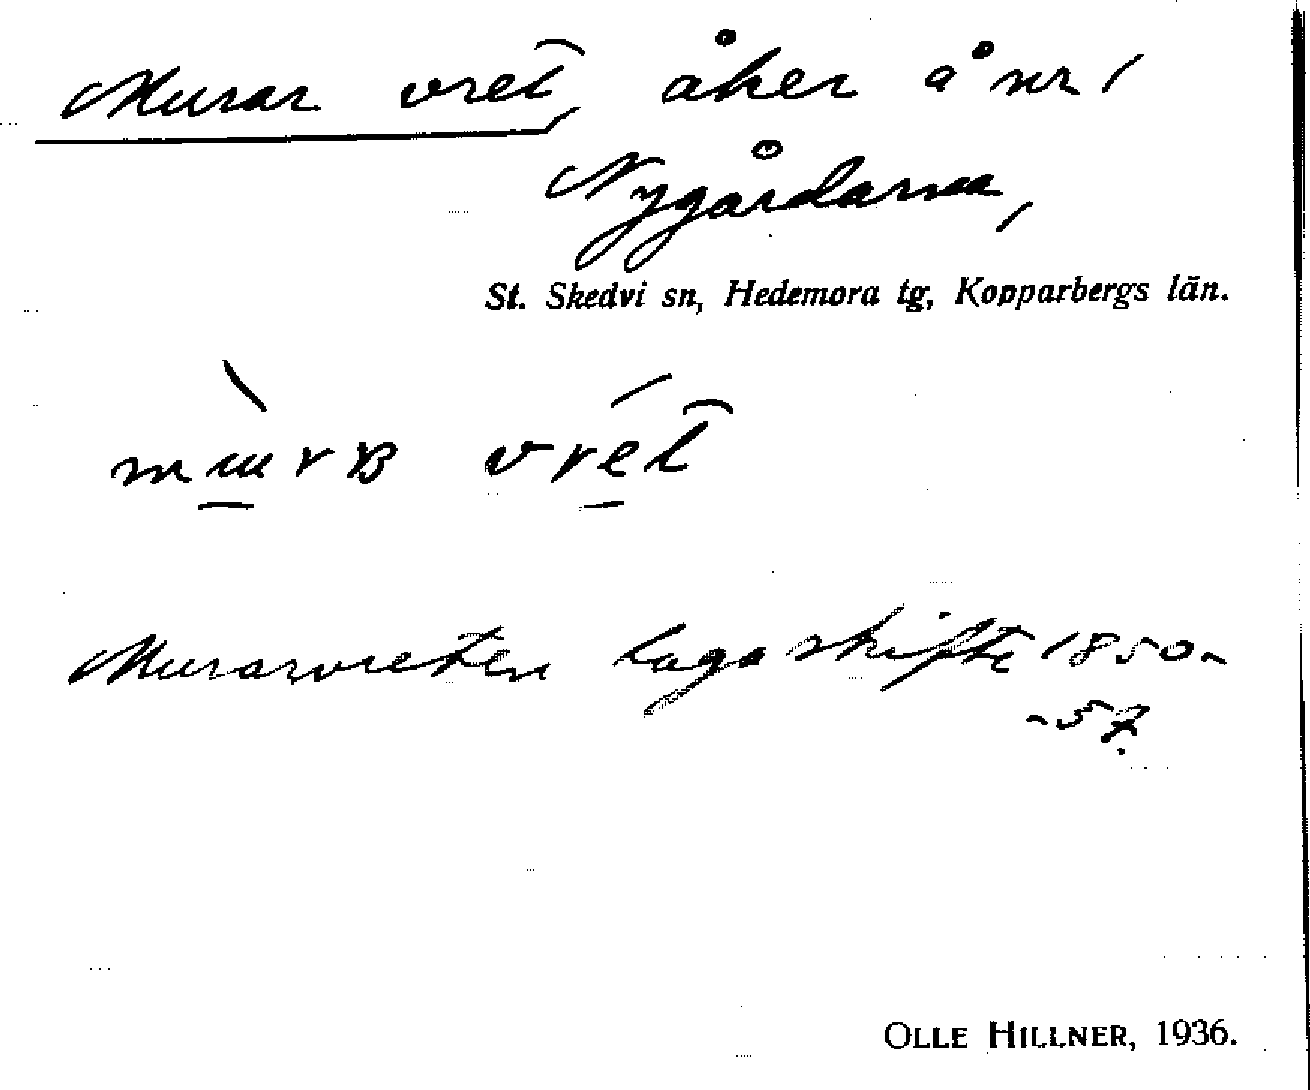 Murar vret, åker å nr 1
Nygårdarna,
St. Skedvi sn, Hedemora tg, Kopparbergs län.
vret
Murarvreten laga skifte 1850-
-57.
OLLE HILLNER, 1936.